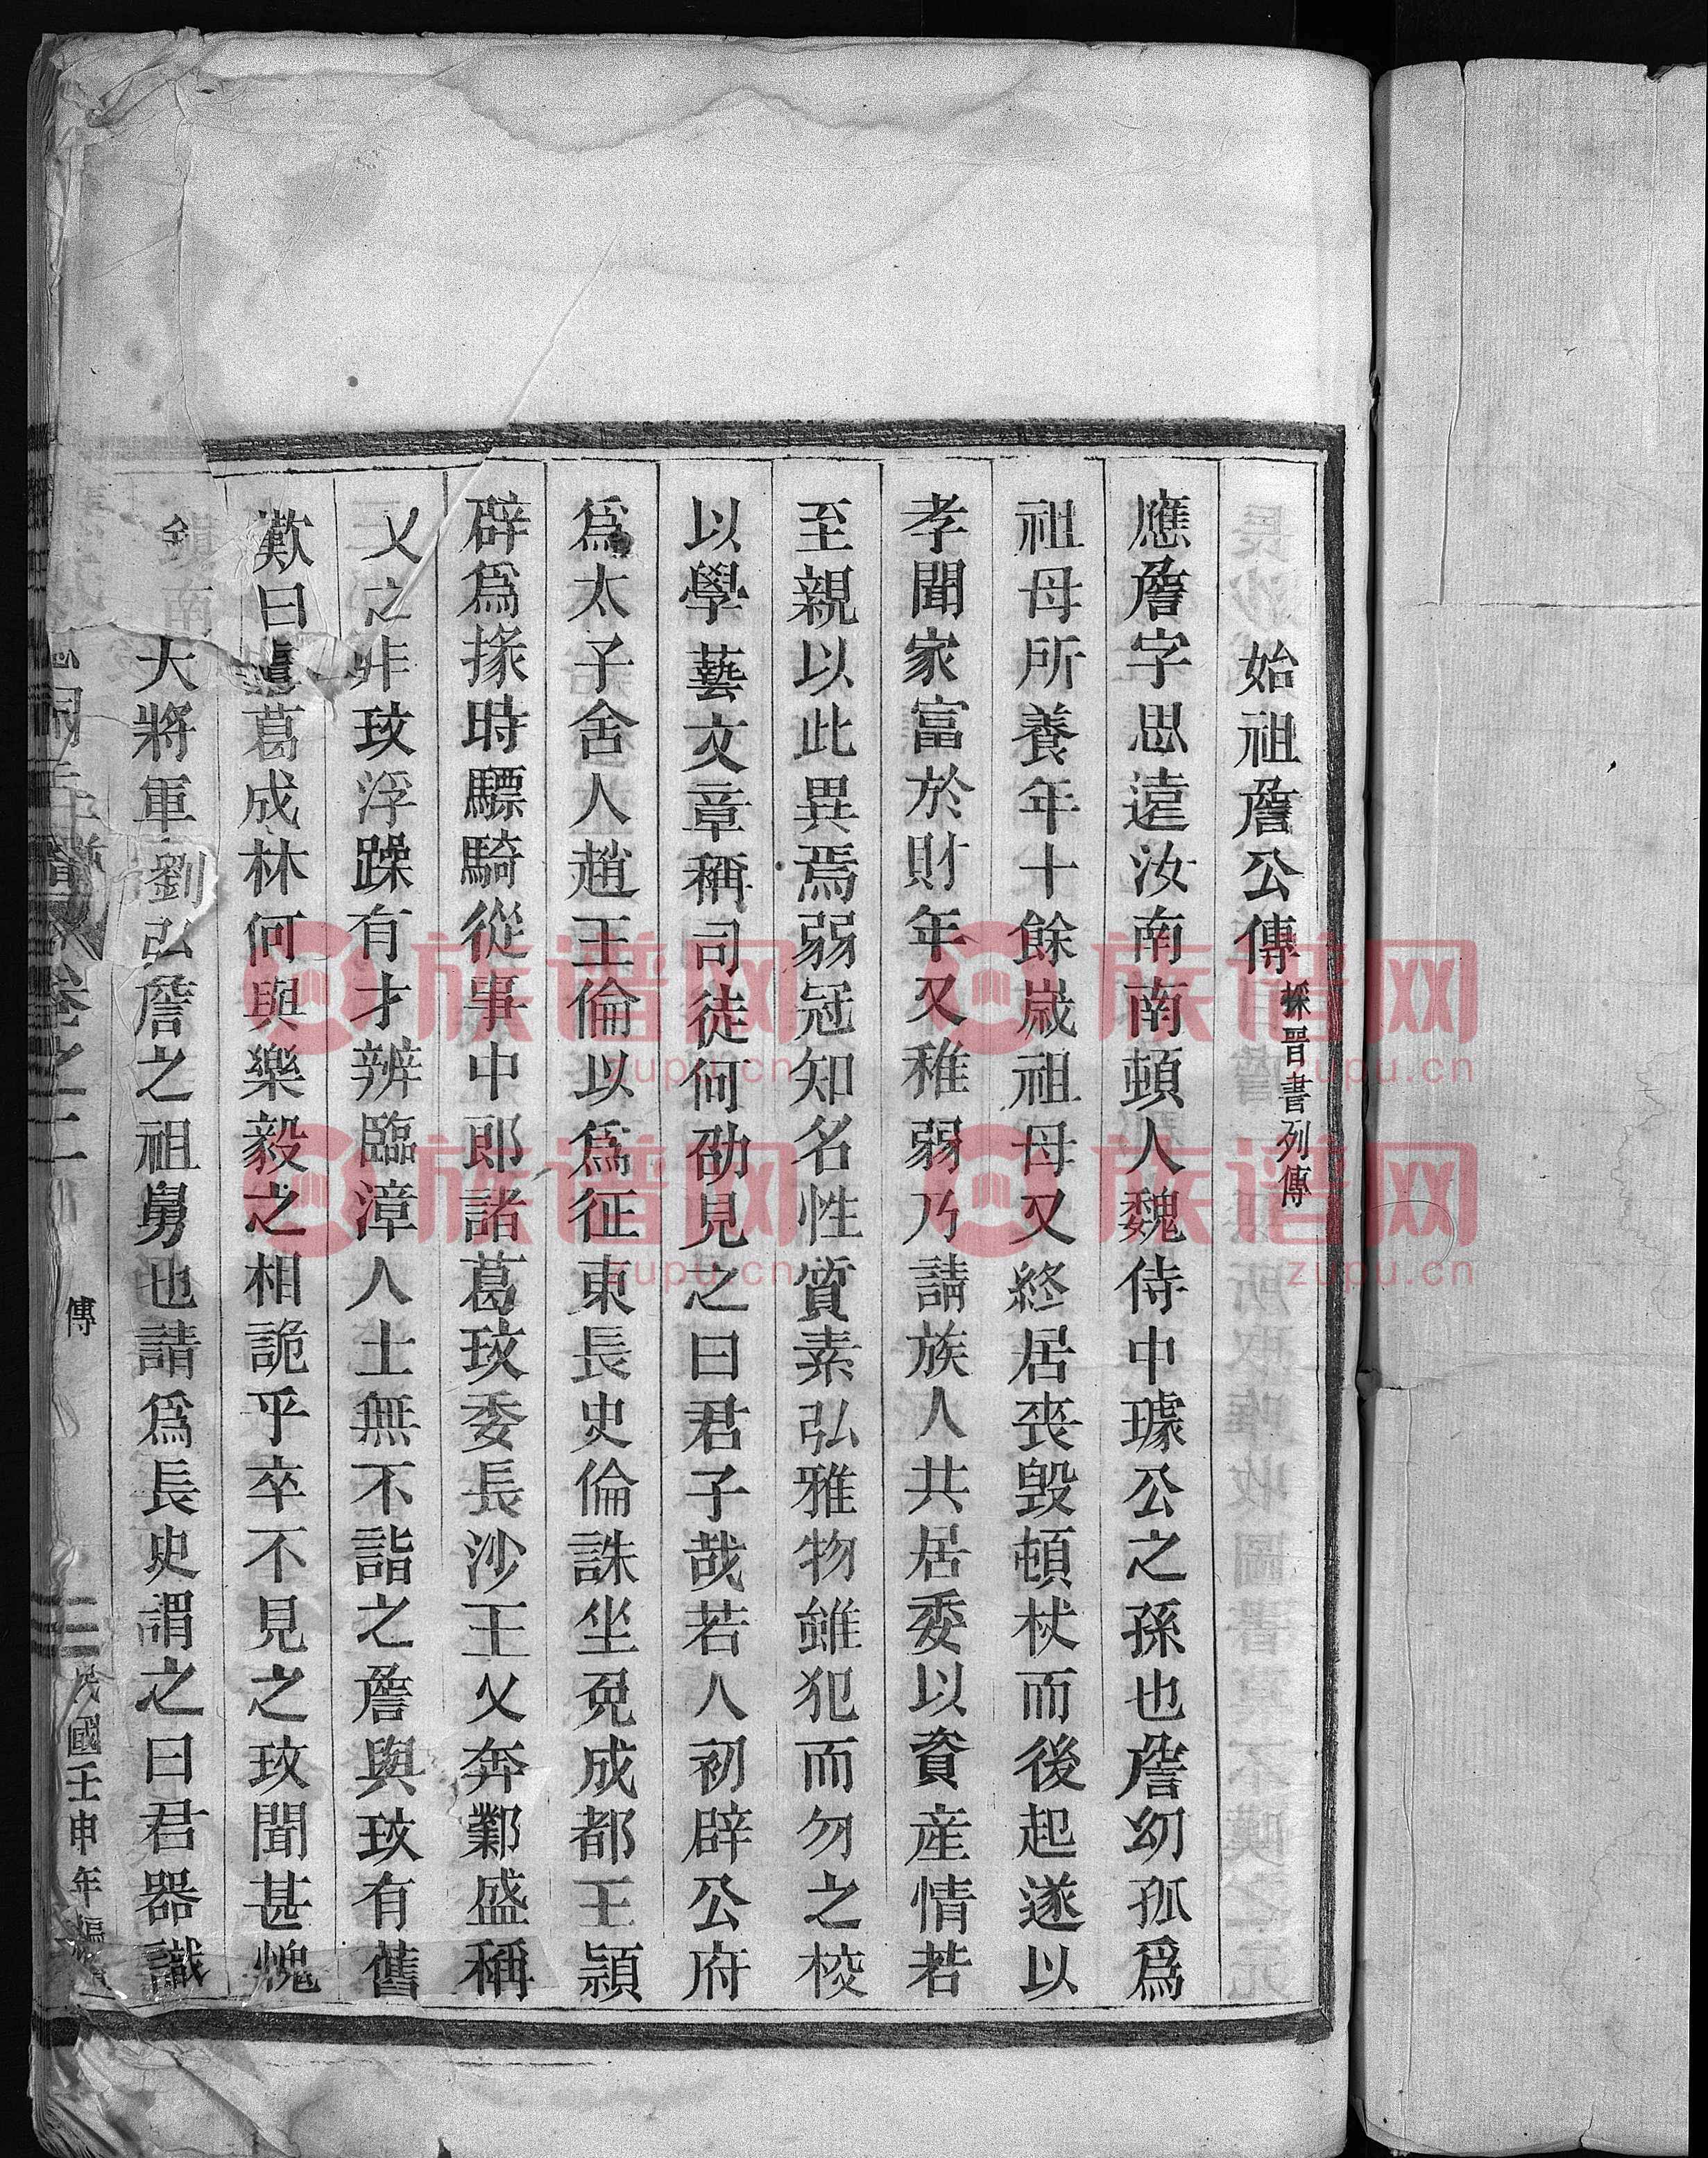 始祖詹公傳 採晉書列傳
應詹字思遠汝南南頓人魏侍中璩公之孫也詹幼孤爲
祖母所養年十餘歲祖母又終居喪毀頓杖而後起遂以
孝聞家富於財年又稚弱乃請族人共居委以資産情若
至親以此異焉弱冠知名性質素弘雅物雖犯而勿之校
以學藝文章稱司徒何劭見之曰君子哉若人初辟公府
爲太子舍人趙王倫以爲征東長史倫誅坐免成都王頴
辟爲掾時驃騎從事中郎諸葛玫委長沙王乂奔鄴盛稱
乂之非玫浮躁有才辨臨漳人士無不詣之詹與玫有舊
歎曰諸葛成林何與樂毅之相詭乎卒不見之玫聞甚愧
鎮南大將軍劉弘詹之祖舅也請爲長史謂之曰君器識
卷之二
傳
三
民國壬申年編
族谱网
zupu.cn
族谱网
zupu.cn
族谱网
zupu.cn
族谱网
zupu.cn